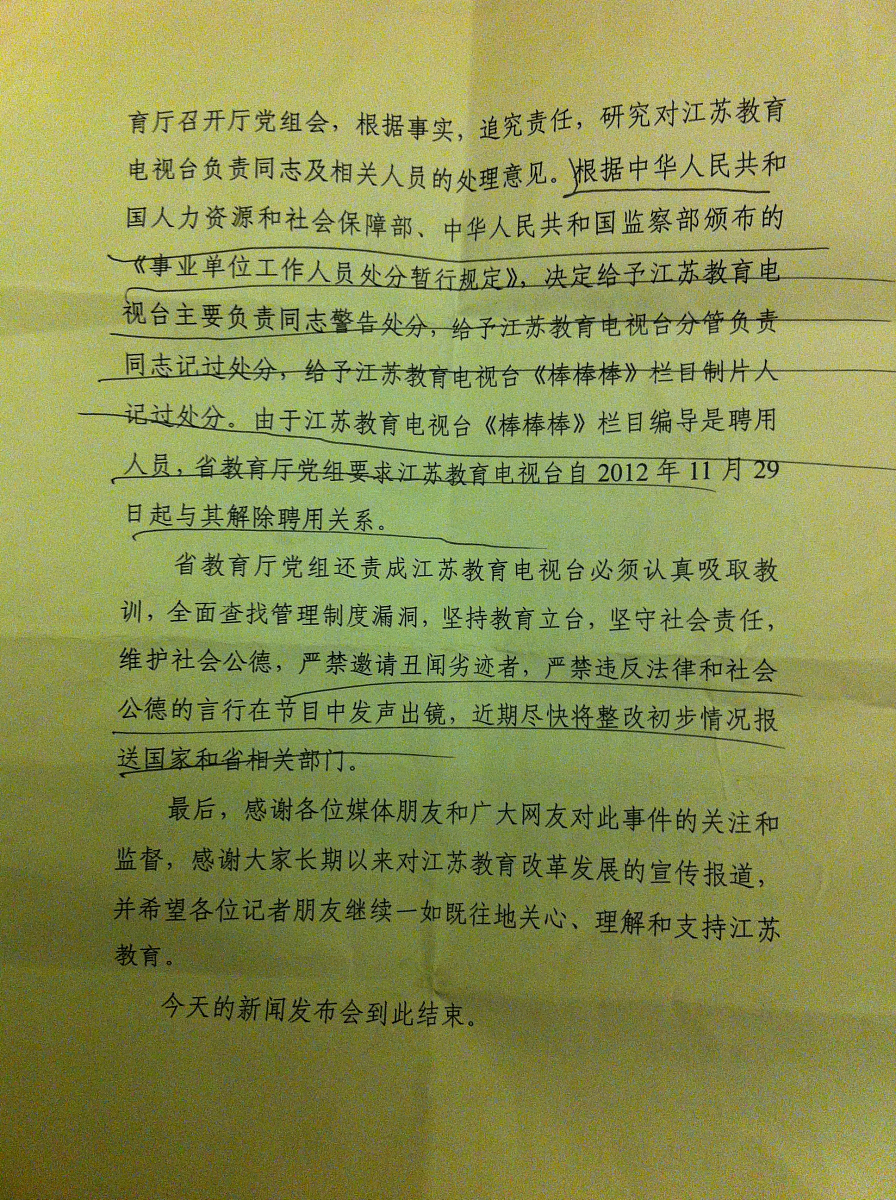 育厅召开厅党组会，根据事实，追究责任，研究对江苏教育
电视台负责同志及相关人员的处理意见。根据中华人民共和
国人力资源和社会保障部、中华人民共和国监察部颁布的
《事业单位工作人员处分暂行规定》，决定给予江苏教育电
视台主要负责同志警告处分，给予江苏教育电视台分管负责
同志记过处分，给予江苏教育电视台《棒棒棒》栏目制片人
记过处分。由于江苏教育电视台《棒棒棒》栏目编导是聘用
人员，省教育厅党组要求江苏教育电视台自 2012 年 11 月 29
日起与其解除聘用关系。
省教育厅党组还责成江苏教育电视台必须认真吸取教
训，全面查找管理制度漏洞，坚持教育立台，坚守社会责任，
维护社会公德，严禁邀请丑闻劣迹者，严禁违反法律和社会
公德的言行在节目中发声出镜，近期尽快将整改初步情况报
送国家和省相关部门。
最后，感谢各位媒体朋友和广大网友对此事件的关注和
监督，感谢大家长期以来对江苏教育改革发展的宣传报道，
并希望各位记者朋友继续一如既往地关心、理解和支持江苏
教育。
今天的新闻发布会到此结束。